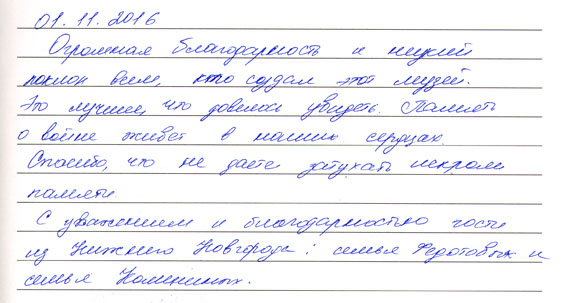 01.11.2016
Огромная благодарность и низкий
поклон всем, кто создал этот музей.
Это лучшее, что довелось увидеть. Память
о войне живет в наших сердцах.
Спасибо, что не даете затухать искрам
памяти.
С уважением и благодарностью гости
из Нижнего Новгорода: семья Федотовых и
семья Каменных.